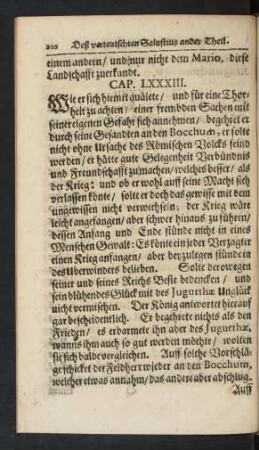 210 Deß verteutschten Salustius ander Theil.
einem andern / und nur nicht dem Mario, diese
Landschafft zuerkandt.
CAP. LXXXIII.
Wie er sich hiemit quälete / und für eine Thor-
heit zu achten / einer frembden Sachen mit
seiner eigenen Gefahr sich annehmen / begehret er
durch seine Gesandten an den Bocchum, er solte
nicht ohne Ursache des Römischen Volcks feind
werden / er hätte gute Gelegenheit Verbündnis
und Freundschafft zu machen / welches besser / als
der Krieg: und ob er wohl auff seine Macht sich
verlassen könte / solte er doch das gewisse mit dem
ungewissen nicht verwechseln: der Krieg wäre
leicht angefangen / aber schwer hinaus zu führen /
dessen Anfang und Ende stünde nicht in eines
Menschen Gewalt: Es könte ein jeder Verzagter
einen Krieg anfangen / aber beyzulegen stünde in
des Uberwinders belieben. Solte derowegen
seiner und seines Reichs Beste bedencken / und
sein blühendes Glück mit des Jugurthæ Unglück
nicht vermischen. Der König antwortet hierauf
gar bescheidentlich. Er begehrete nichts als den
Frieden / es erbarmete ihn aber des Jugurthæ,
wanns ihm auch so gut werden möchte / wolten
sie sich balde vergleichen. Auff solche Vorschlä-
ge schicket der Feldherr wieder an den Bocchum,
welcher etwas annahm / das andere aber abschlug.
Auff